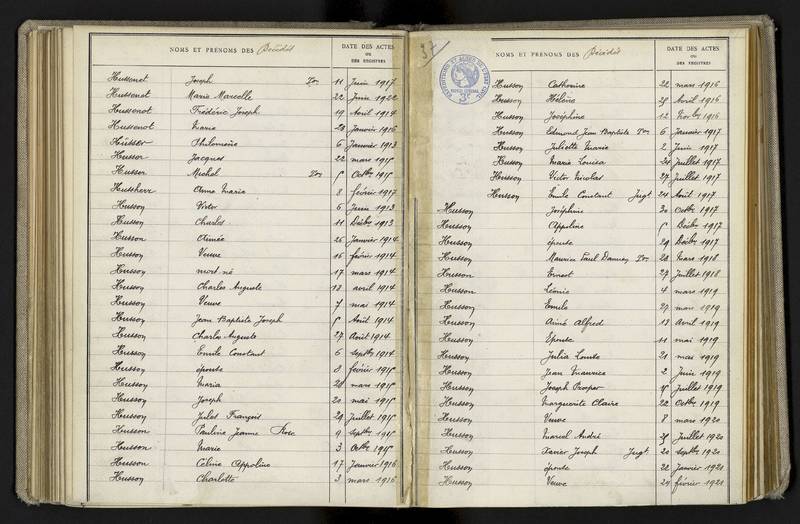 NOMS ET PRÉNOMS DES Décédés
DATE DES ACTES
OU
DES REGISTRES
Hussenet Joseph Tr 11 Juin 1917
Hussenot Marie Marcelle 22 Juin 1922
Hussenot Frédéric Joseph 19 Avril 1914
Hussenot Marie 28 Janvier 1916
Hüsser Philomène 6 Janvier 1913
Husser Jacques 22 mars 1915
Husser Michel Tr 5 Octbre 1915
Hussherr Anne Marie 8 février 1917
Husson Victor 6 Juin 1913
Husson Charles 11 Décbre 1913
Husson Aimée 26 Janvier 1914
Husson Veuve 16 février 1914
Husson mort né 17 mars 1914
Husson Charles Auguste 13 avril 1914
Husson Veuve 7 mai 1914
Husson Jean Baptiste Joseph 5 Août 1914
Husson Charles Auguste 27 Août 1914
Husson Emile Constant 6 Septbre 1914
Husson épouse 8 février 1915
Husson Maria 28 mars 1915
Husson Joseph 20 mai 1915
Husson Jules François 29 Juillet 1915
Husson Pauline Jeanne Rose 9 Septbre 1915
Husson Marie 3 Octbre 1915
Husson Céline Appoline 17 Janvier 1916
Husson Charlotte 3 mars 1916
37
NOMS ET PRÉNOMS DES Décédés
DATE DES ACTES
OU
DES REGISTRES
Husson Catherine 22 mars 1916
Husson Hélène 25 Avril 1916
Husson Joséphine 12 Novbre 1916
Husson Edmond Jean Baptiste Tr 6 Janvier 1917
Husson Juliette Marie 2 Juin 1917
Husson Marie Louisa 24 Juillet 1917
Husson Victor Nicolas 27 Juillet 1917
Husson Emile Constant Jugt 24 Août 1917
Husson Joséphine 30 Octbre 1917
Husson Appoline 5 Décbre 1917
Husson épouse 29 Décbre 1917
Husson Maurice Paul Tr 28 Mars 1918
Husson Ernest 27 Juillet 1918
Husson Léonie 4 mars 1919
Husson Emile 27 mars 1919
Husson Aimé Alfred 13 Avril 1919
Husson Epouse 11 mai 1919
Husson Julia Louise 21 mai 1919
Husson Jean Maurice 2 Juin 1919
Husson Joseph Prosper 15 Juillet 1919
Husson Marguerite Claire 22 Octbre 1919
Husson Veuve 8 mars 1920
Husson Marcel André 25 Juillet 1920
Husson Xavier Joseph Jugt 20 Septbre 1920
Husson épouse 22 Janvier 1921
Husson Veuve 24 février 1921